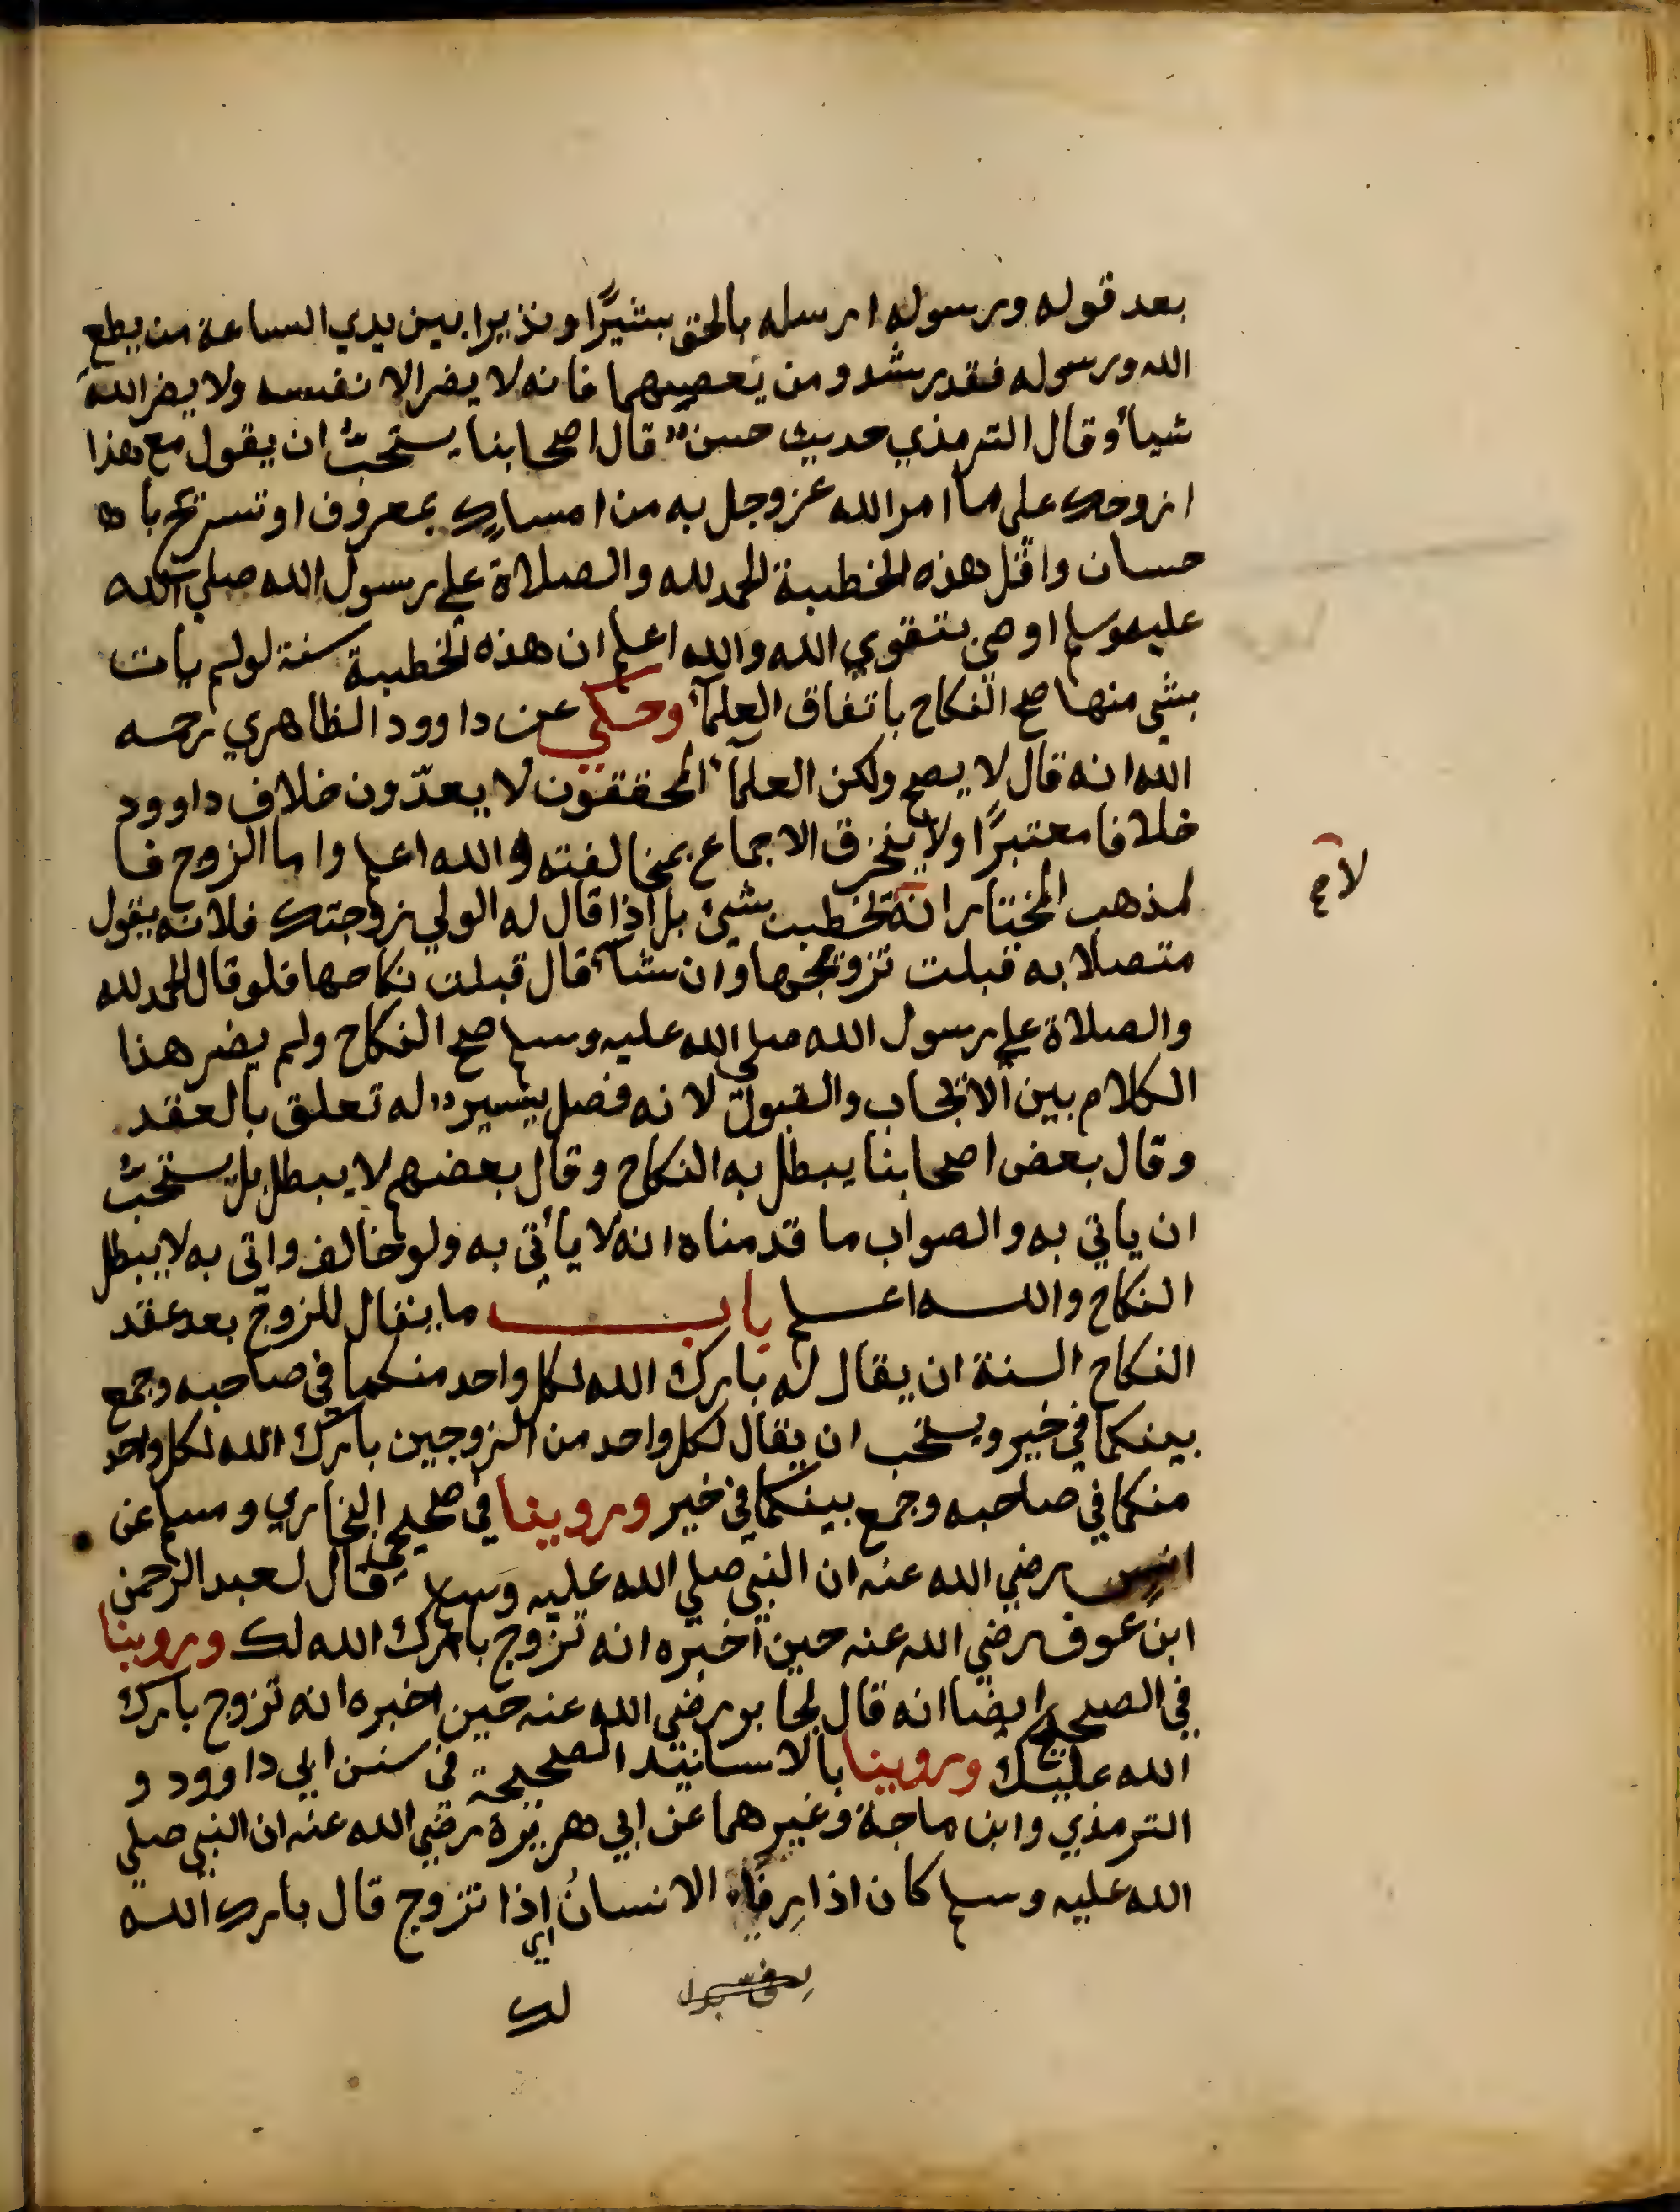 بعد قوله ورسوله ارسله بالحق بشيرًا ونذيرا بين يدي الساعة من يطع
الله ورسوله فقد رشد ومن يعصهما فانه لا يضر الا نفسه ولا يضر الله
شيأ وقال الترمذي حديث حسن قال اصحابنا يستحبّ ان يقول مع هذا
ازوجك على ما امر الله عزوجل به من امساك بمعروف او تسريح با
حسان واقل هذه الخطبة الحمد لله والصلاة علي رسول الله صلي الله
عليه وسلم اوصي بتقوي الله والله اعلم ان هذه الخطبة سنة لو لم يأت
بشي منها صح النكاح باتفاق العلمآء وحكي عن داوود الظاهري رحمه
الله انه قال لا يصح ولكن العلمآء المحققون لا يعدّون خلاف داوود
خلافا معتبرًا ولا ينخرق الاجماع بمخالفته والله اعلم واما الزوج فا
لمذهب المختار انه يخطب بشيئ بل اذا قال له الولي زوجتك فلانه يقول
لا صح
متصلا به قبلت تزويجها وان شآء قال قبلت نكاحها فلو قال الحمد لله
والصلاة علي رسول الله صلي الله عليه وسلم صح النكاح ولم يضر هذا
الكلام بين الايجاب والقبول لانه فصل يسير له تعلق بالعقد
وقال بعض اصحابنا يبطل به النكاح وقال بعضهم لا يبطل بل يستحبّ
ان ياتي به والصواب ما قدمناه انه لا يأتي به ولو خالف واتى به لا يبطل
النكاح والله اعلم باب ما يقال للزوج بعد عقد
النكاح السنة ان يقال له بارك الله لكل واحد منكما في صاحبه وجمع
بينكما في خير ويستحب ان يقال لكل واحد من الزوجين بارك الله لكل واحد
منكما في صاحبه وجمع بينكما في خير وروينا في صحيحي البخاري ومسلم عن
انس رضي الله عنه ان النبي صلي الله عليه وسلم قال لعبد الرحمن
ابن عوف رضي الله عنه حين اخبره انه تزوج بارك الله لك وروينا
في الصحيح ايضا انه قال لجابر رضي الله عنه حين اخبره انه تزوج بارك
الله عليك وروينا بالاسانيد الصحيحة في سنن ابي داوود و
الترمذي وابن ماجة وغيرهما عن ابي هريرة رضي الله عنه ان النبي صلي
الله عليه وسلم كان اذا رفأ الانسانُ اي اذا تزوج قال بارك الله
لك